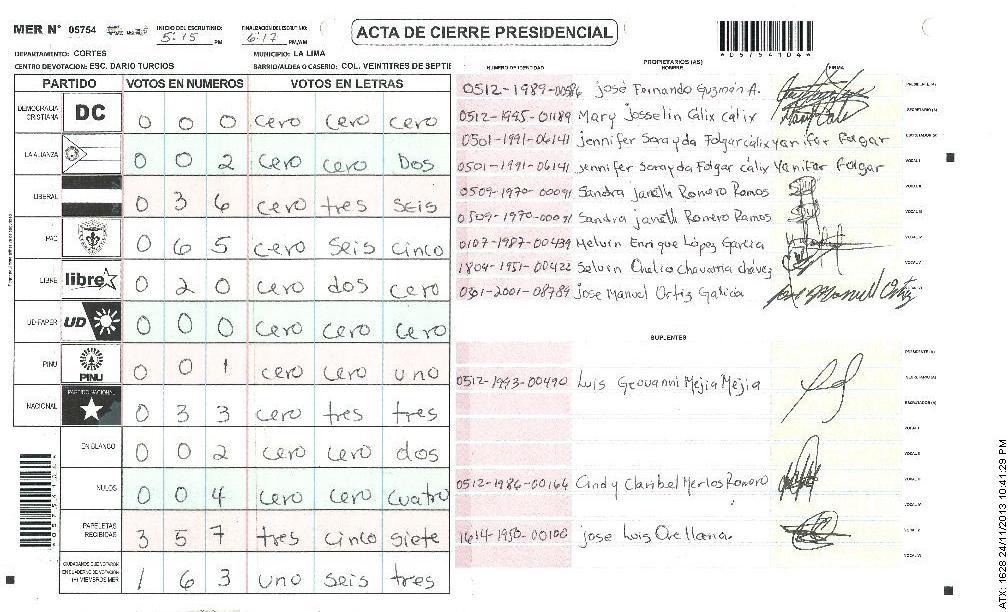 MER N° 05754
INICIO DEL ESCRUTINIO: 5:15 PM
FINALIZACION DEL ESCRUTINIO: 6:17 PM/AM
ACTA DE CIERRE PRESIDENCIAL
*05754104*
DEPARTAMENTO: CORTES
MUNICIPIO: LA LIMA
CENTRO DE VOTACION: ESC. DARIO TURCIOS
BARRIO/ALDEA O CASERIO: COL. VEINTITRES DE SEPTIE
PARTIDO VOTOS EN NUMEROS VOTOS EN LETRAS
DEMOCRACIA CRISTIANA DC 0 0 0 cero cero cero
LA ALIANZA 0 0 2 cero cero Dos
LIBERAL 0 3 6 cero tres seis
PAC 0 6 5 cero seis cinco
LIBRE libre 0 2 0 cero dos cero
UD-FAPER UD 0 0 0 cero cero cero
PINU PINU 0 0 1 cero cero uno
NACIONAL PARTIDO NACIONAL 0 3 3 cero tres tres
EN BLANCO 0 0 2 cero cero dos
NULOS 0 0 4 cero cero cuatro
PAPELETAS RECIBIDAS 3 5 7 tres cinco siete
CIUDADANOS QUE VOTARON EN CUADERNO DE VOTACION (+) MIEMBROS MER 1 6 3 uno seis tres
PROPIETARIOS (AS)
NUMERO DE IDENTIDAD NOMBRE FIRMA
0512-1989-00586 josé Fernando Guzmán A. PRESIDENTE (A)
0512-1995-01189 Mary Josselin Cálix cálix SECRETARIO (A)
0501-1991-06141 jennifer Sorayda Folgar cálix yanifer folgar ESCRUTADOR (A)
0501-1991-06141 jennifer Sorayda Folgar cálix Yanifer folgar VOCAL I
0509-1970-00091 Sandra janeth Romero Ramos VOCAL II
0509-1970-00091 Sandra janeth Romero Ramos VOCAL III
0107-1987-00439 Melvin Enrique López García VOCAL IV
1804-1951-00422 Selvin Ovelio Chavarria chávez VOCAL V
0301-2001-08789 Jose Manuel Ortiz Galicia Jose Manuel Ortiz VOCAL VI
SUPLENTES
PRESIDENTE (A)
0512-1993-00490 Luis Geovanni Mejia Mejia SECRETARIO (A)
ESCRUTADOR (A)
VOCAL I
VOCAL II
0512-1986-00166 Cindy Claribel Merlos Romero VOCAL III
VOCAL IV
1614-1950-00100 jose Luis Orellana. VOCAL V
VOCAL VI
ATX: 1628 24/11/2013 10:41:29 PM